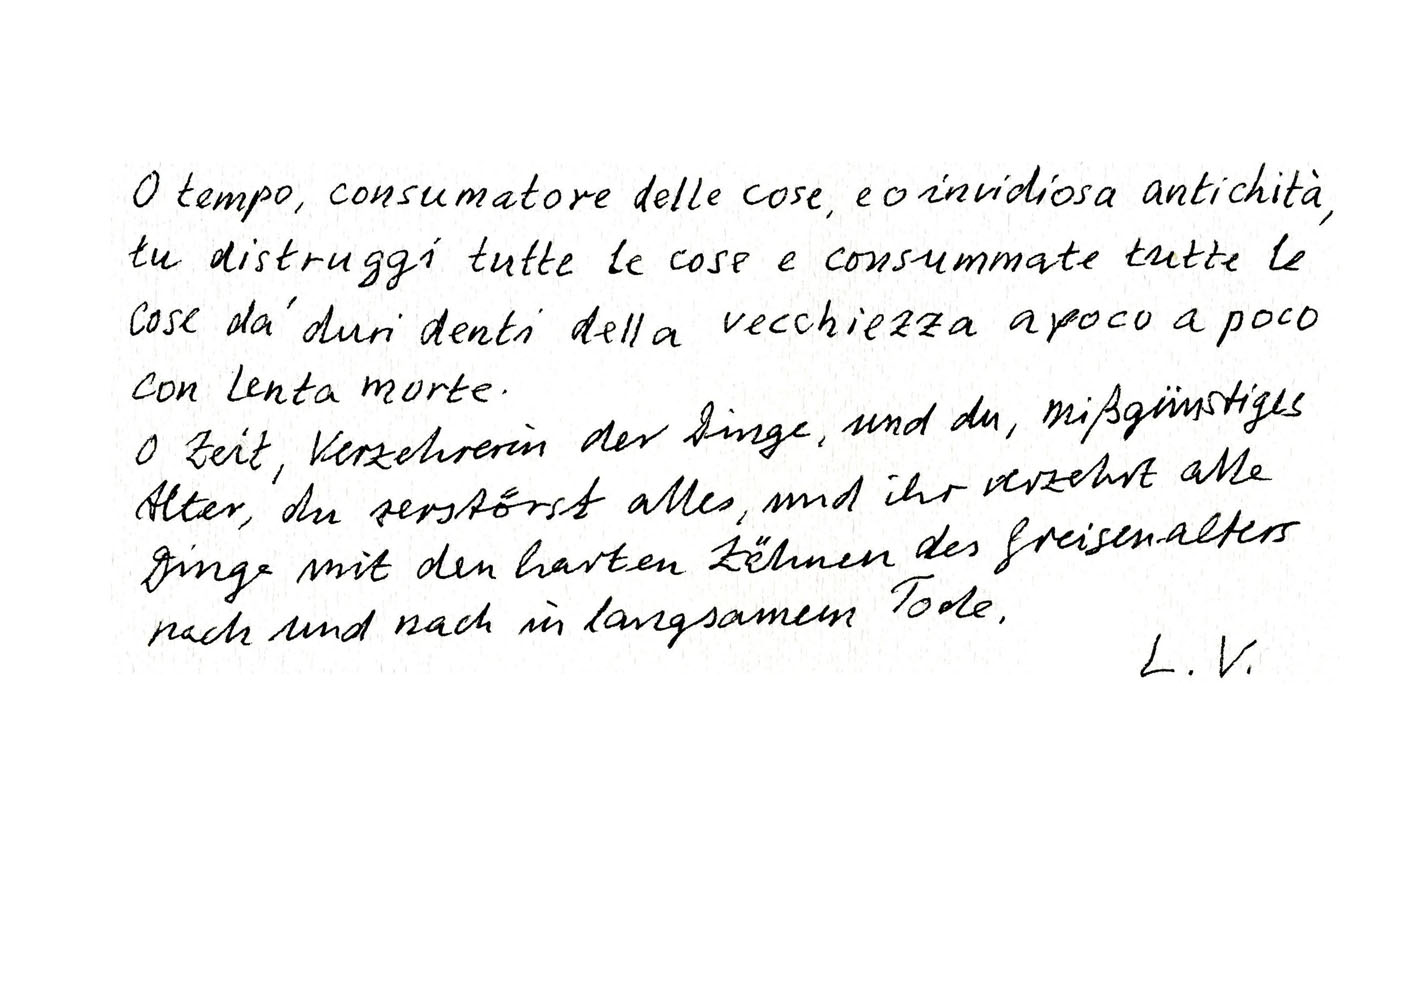 O tempo, consumatore delle cose, e o invidiosa antichità,
tu distruggi tutte le cose e consummate tutte le
cose da' duri denti della vecchiezza a poco a poco
con lenta morte.
O Zeit, Verzehrerin der Dinge, und du, mißgünstiges
Alter, du zerstörst alles, und ihr verzehrt alle
Dinge mit den harten Zähnen des Greisenalters
nach und nach in langsamem Tode.
L. V.